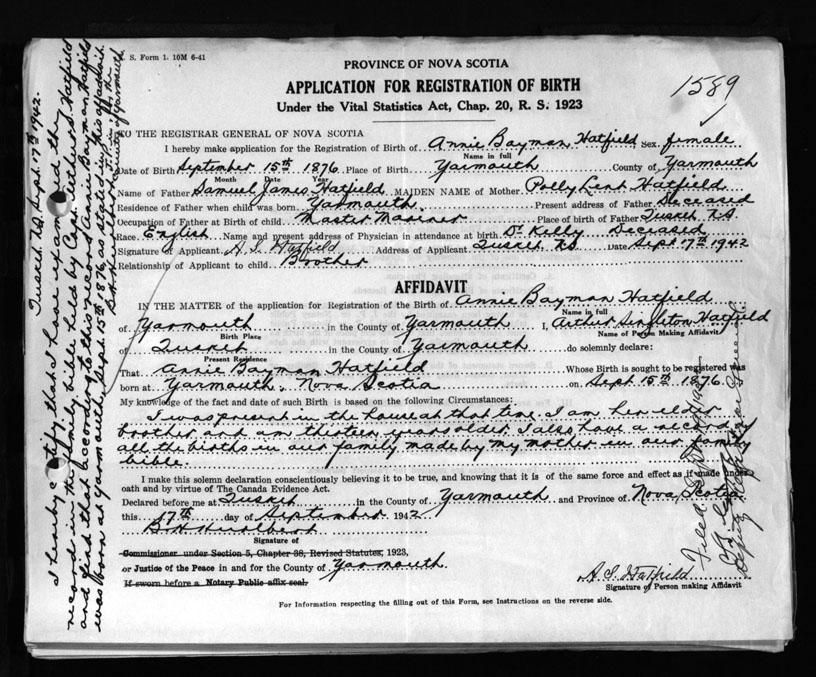 V. S. Form 1. 10M 6-41
PROVINCE OF NOVA SCOTIA
1589
APPLICATION FOR REGISTRATION OF BIRTH
Under the Vital Statistics Act, Chap. 20, R. S. 1923
TO THE REGISTRAR GENERAL OF NOVA SCOTIA
I hereby make application for Registration of Birth of Annie Bayman Hatfield Sex female
Name in full
Date of Birth September 15th 1876 Place of Birth Yarmouth County of Yarmouth
Month Date Year
Name of Father Samuel James Hatfield MAIDEN NAME of Mother Polly Lent Hatfield
Residence of Father when child was born Yarmouth Present address of Father Deceased
Occupation of Father at Birth of child Master Mariner Place of birth of Father Tusket N.S.
Race English Name and present address of Physician in attendance at birth Dr Kelly Deceased
Signature of Applicant A. S. Hatfield Address of Applicant Tusket N.S. Date Sept 17th 1942
Relationship of Applicant to child Broother
AFFIDAVIT
IN THE MATTER of the application for Registration of the Birth of Annie Bayman Hatfield
Name in full
of Yarmouth in the County of Yarmouth I, Arthur Singleton Hatfield
Birth Place Name of Person Making Affidavit
of Tusket in the County of Yarmouth do solemnly declare:
Present Residence
That Annie Bayman Hatfield Whose Birth is sought to be registered was
born at Yarmouth, Nova Scotia on Sept 15th 1876
My knowledge of the fact and date of such Birth is based on the following Circumstances:
I was present in the house at that time. I am her elder
brother and am thirteen years older. I also have a record of
all the births in our family made by my mother in our family
bible.
I make this solemn declaration conscientiously believing it to be true, and knowing that it is of the same force and effect as if made under
oath and by virtue of The Canada Evidence Act.
Declared before me at Tusket in the County of Yarmouth and Province of Nova Scotia
this 17th day of September 1942
B. H. Hurlbert
Signature of
Commissioner under Section 5, Chapter 38, Revised Statutes, 1923,
or Justice of the Peace in and for the County of Yarmouth
If sworn before a Notary Public affix seal.
A. S. Hatfield
Signature of Person making Affidavit
For Information respecting the filling out of this Form, see Instructions on the reverse side.
Tusket N.S. Sept. 17th 1942.
I hereby certify that I have examined the
record in the family bible held by Capt. Arthur S. Hatfield
and find that according to this record Annie Bayman Hatfield
was born at Yarmouth Sept. 15th 1876, as stated in this affidavit.
B. H. Hurlbert J.P. in &amp; for the
County of Yarmouth
Filed
Deputy Registrar General